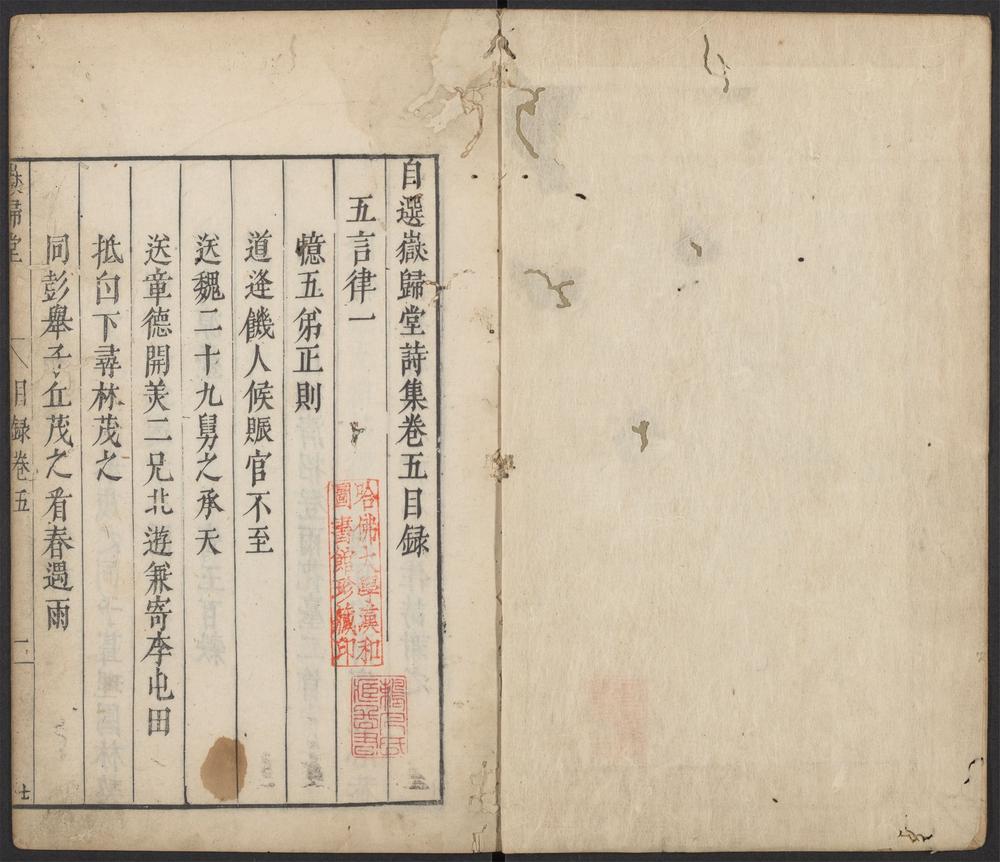 自選嶽歸堂詩集卷五目録
五言律一
憶五弟正則
道逢饑人候賑官不至
送魏二十九舅之承天
送章德開美二兄北遊兼寄李屯田
抵白下尋林茂之
同彭舉子丘茂之看春遇雨
嶽歸堂
目録卷五
哈佛大學漢和
圖書館珍藏印